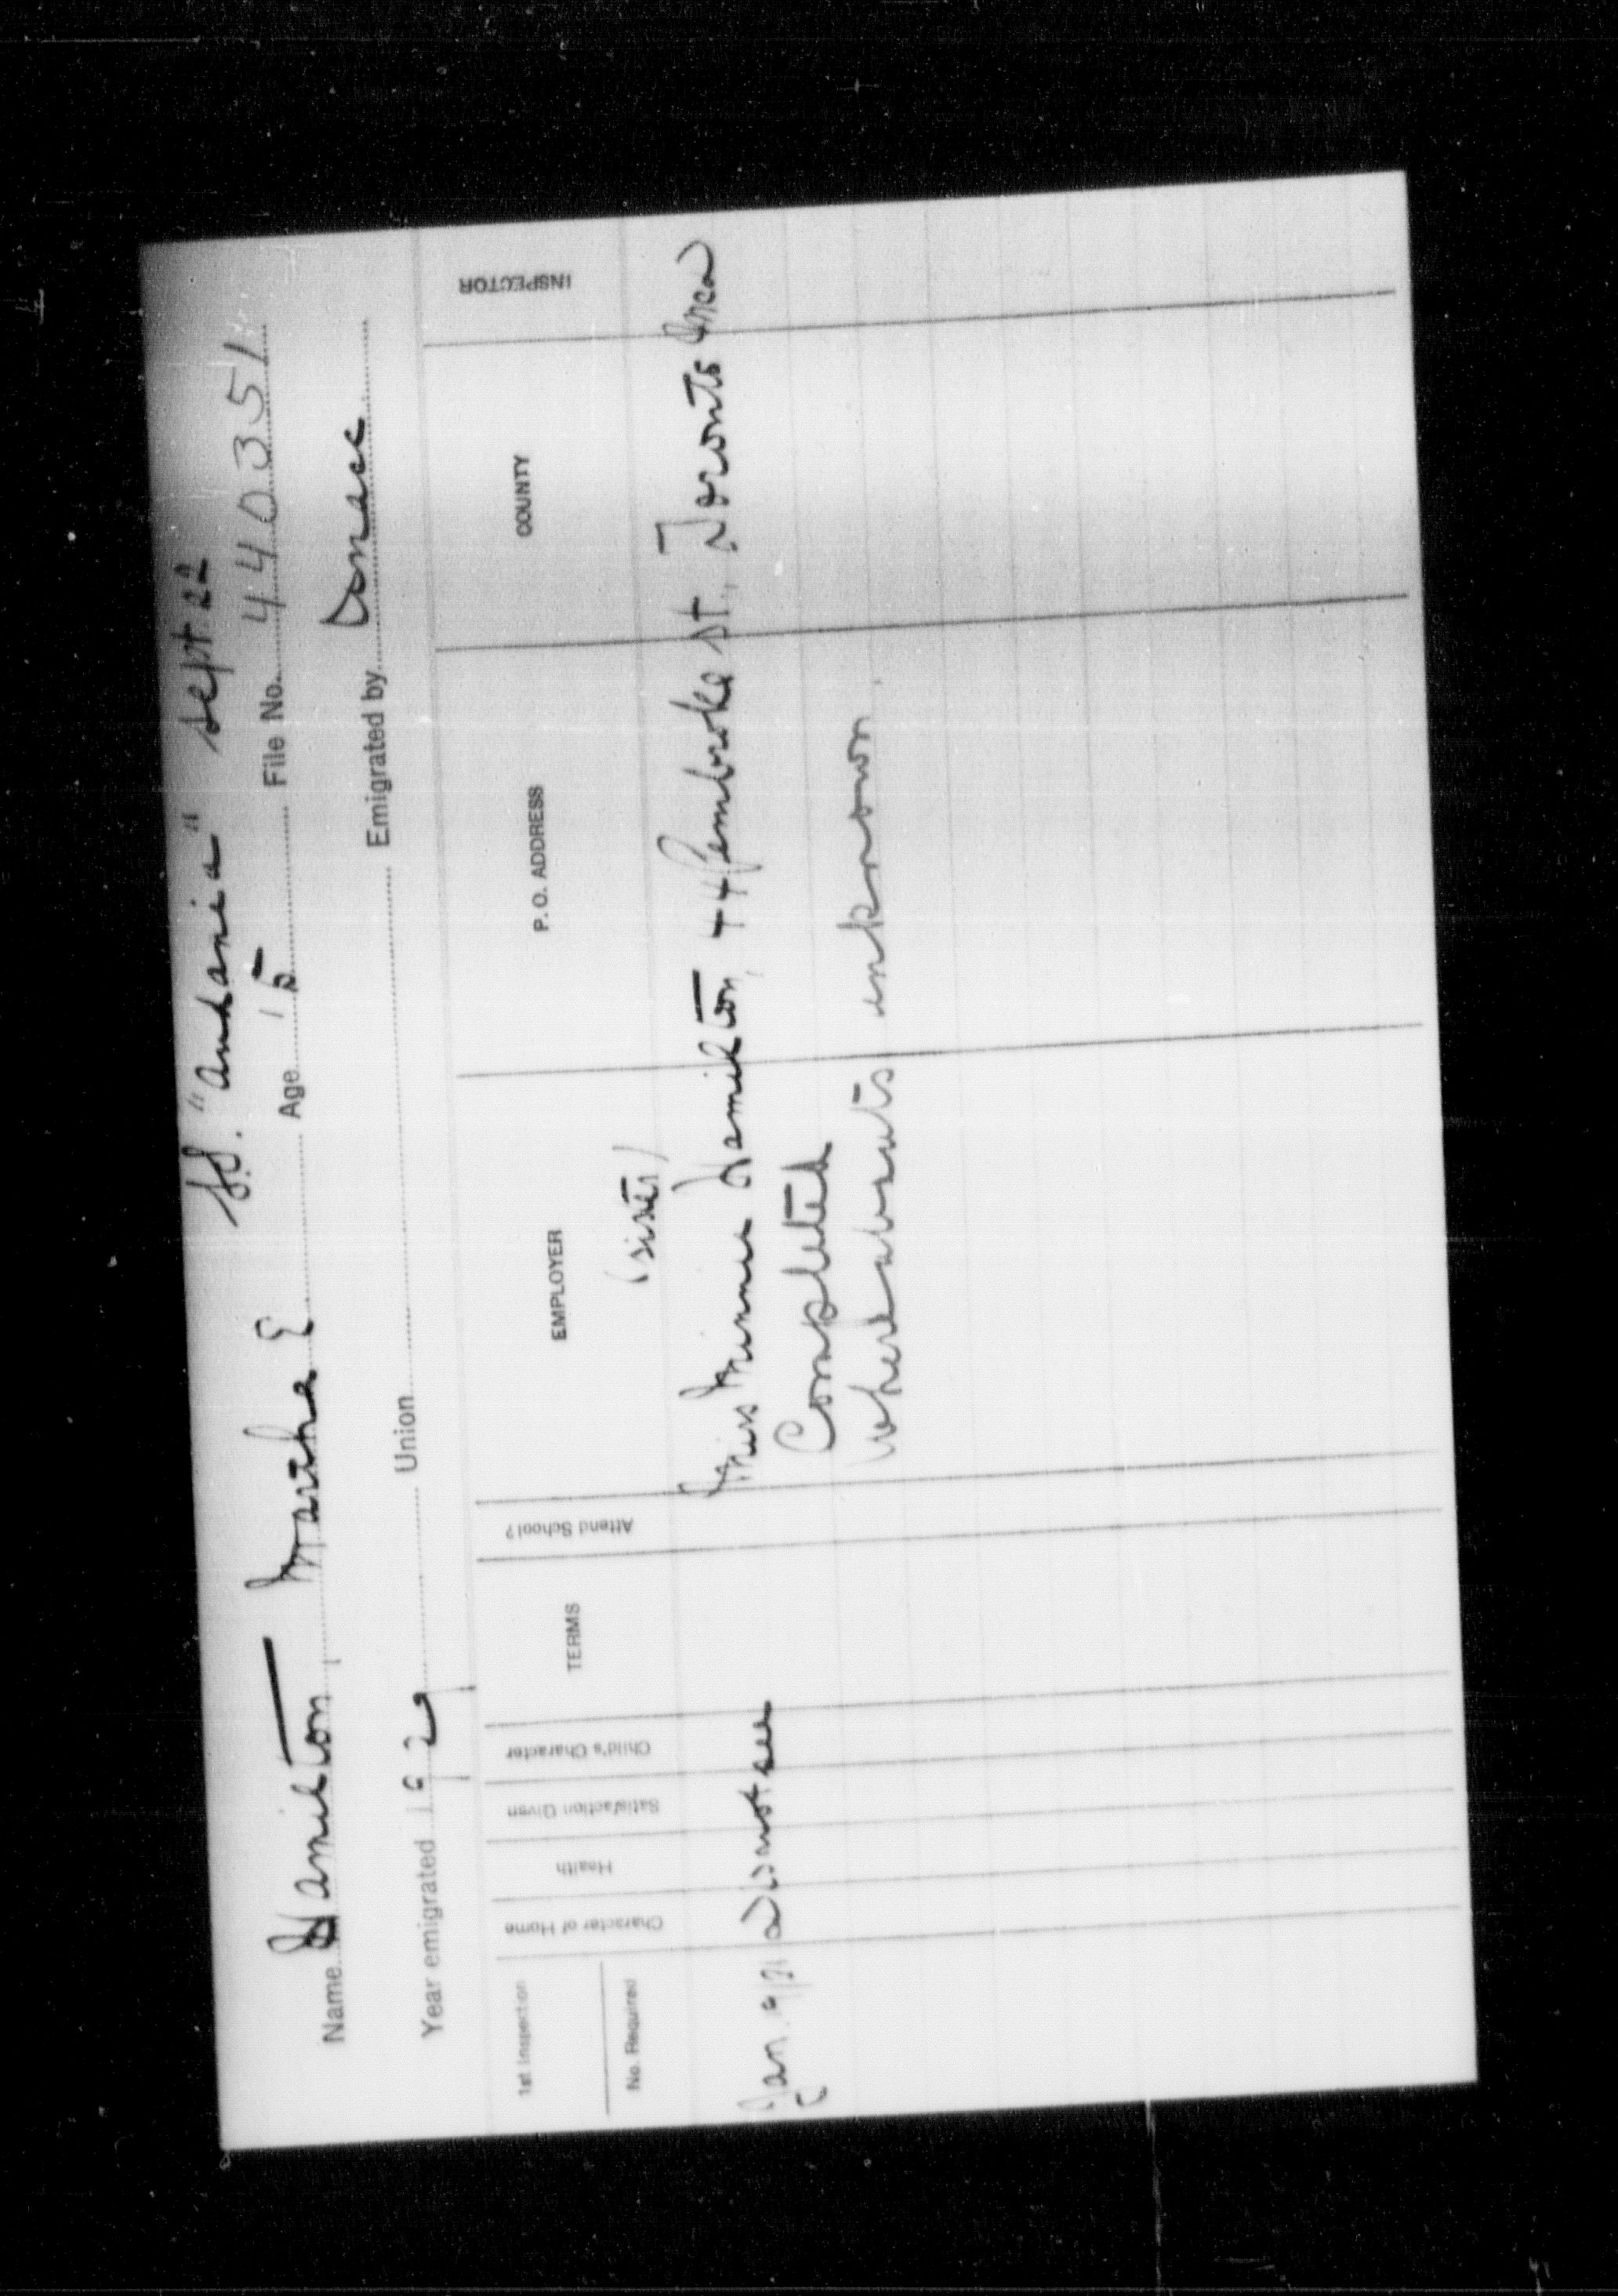 S.S. "Andania" Sept 22
Name Hamilton Martha E Age 15 File No. 440351
Year emigrated 1922 Union Emigrated by
1st Inspection
No. Required
Character of Home
Health
Satisfaction Given
Child's Character
TERMS
Attend School?
EMPLOYER
P. O. ADDRESS
COUNTY
INSPECTOR
(sister)
Miss Minnie Hamilton, 44 Pembroke St., Toronto
Jan not see Completed
Whereabouts unknown